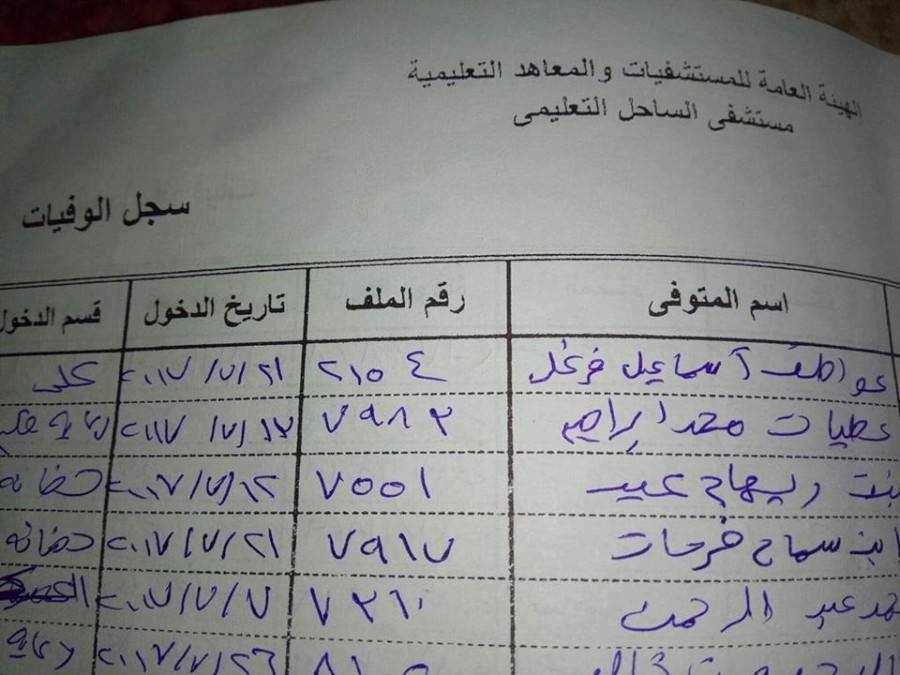 الهيئة العامة للمستشفيات والمعاهد التعليمية
مستشفى الساحل التعليمى
سجل الوفيات
اسم المتوفى رقم الملف تاريخ الدخول قسم الدخول
عواطف اسماعيل فرغل ٢١٥٤ ٢٠١٧/٧/٢١ كلى
عطيات محمد ابراهيم ٧٩٨٣ ٢٠١٧/٧/
بنت ريهام عيد ٧٥٥١ ٢٠١٧/٧/١٢ حضانه
ابن سماح فرحات ٧٩١٧ ٢٠١٧/٧/٢١ حضانه
عبد الرحمن ٧٣٦٠ ٢٠١٧/٧/٧
٢٠١٧/٧/٢٦ رعاية